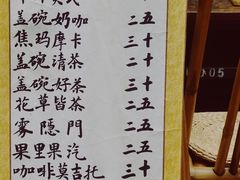 盖碗奶咖 二五
焦玛摩卡 三十
盖碗清茶 二十
盖碗好茶 三十
花草皆茶 二五
雾隐門 二五
果里果汽 二五
咖啡莫吉托 三十
05